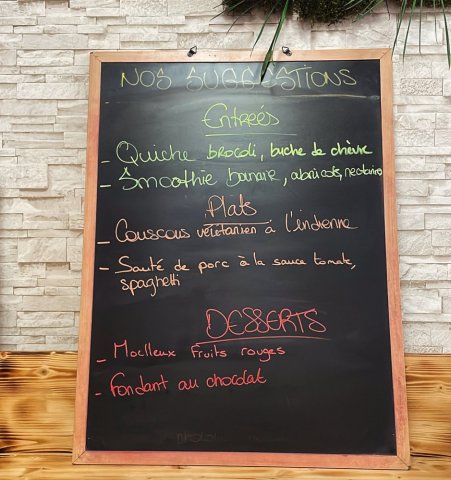 NOS SUGGESTIONS
Entreés
- Quiche brocoli, buche de chèvre
- Smoothie banane, abricots, nectarines
Plats
- Couscous végétarien à l'indienne
- Sauté de porc à la sauce tomate,
spaghetti
DESSERTS
- Moelleux Fruits rouges
- Fondant au chocolat